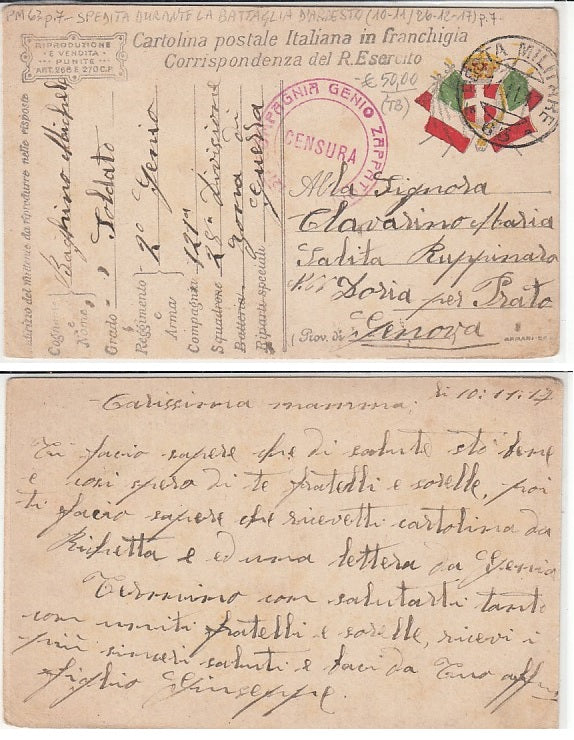 PM63 p.7 - SPEDITA DURANTE LA BATTAGLIA D'ARRESTO (10-11/26-12-17) p.7-
RIPRODUZIONE
E VENDITA
PUNITE
ART. 266 E 270 C.P.
Cartolina postale Italiana in franchigia
Corrispondenza del R. Esercito
€ 50,00
(TB)
COMPAGNIA GENIO ZAPPATORI
CENSURA
POSTA MILITARE
63
Indirizzo del mittente da riprodurre nelle risposte
Cognome
e
Nome
Grado - " Soldato
Reggimento - 2° Genio
e
Arma
Compagnia 121a
Squadrone 28a Divisione
Batteria zona di
Riparti speciali guerra
Alla Signora
Clavarino Maria
Salita Ruppinaro
Doria per Prato
(Prov. di Genova
li 10:11:17
Carissima mamma,
Ti facio sapere che di salute stò bene
e così spero di te fratelli e sorelle, poi
ti facio sapere che ricevetti cartolina da
Richetta e ed una lettera da Genia
Termino con salutarti tanto
con uniti fratelli e sorelle, ricevi i
più sinceri saluti e baci da Tuo aff
figlio Giuseppe.